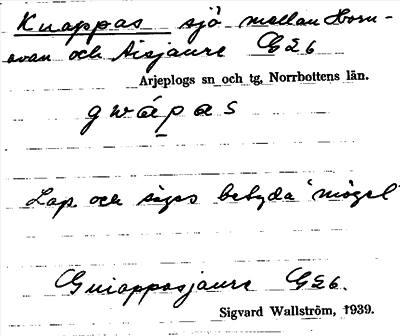 Knappas sjö mellan Horn-
avan och Aisjaure G26
Arjeplogs sn och tg, Norrbottens län.
gwápas
Lap och säges betyda "mögel"
Guiappasjaure G26.
Sigvard Wallström, 1939.